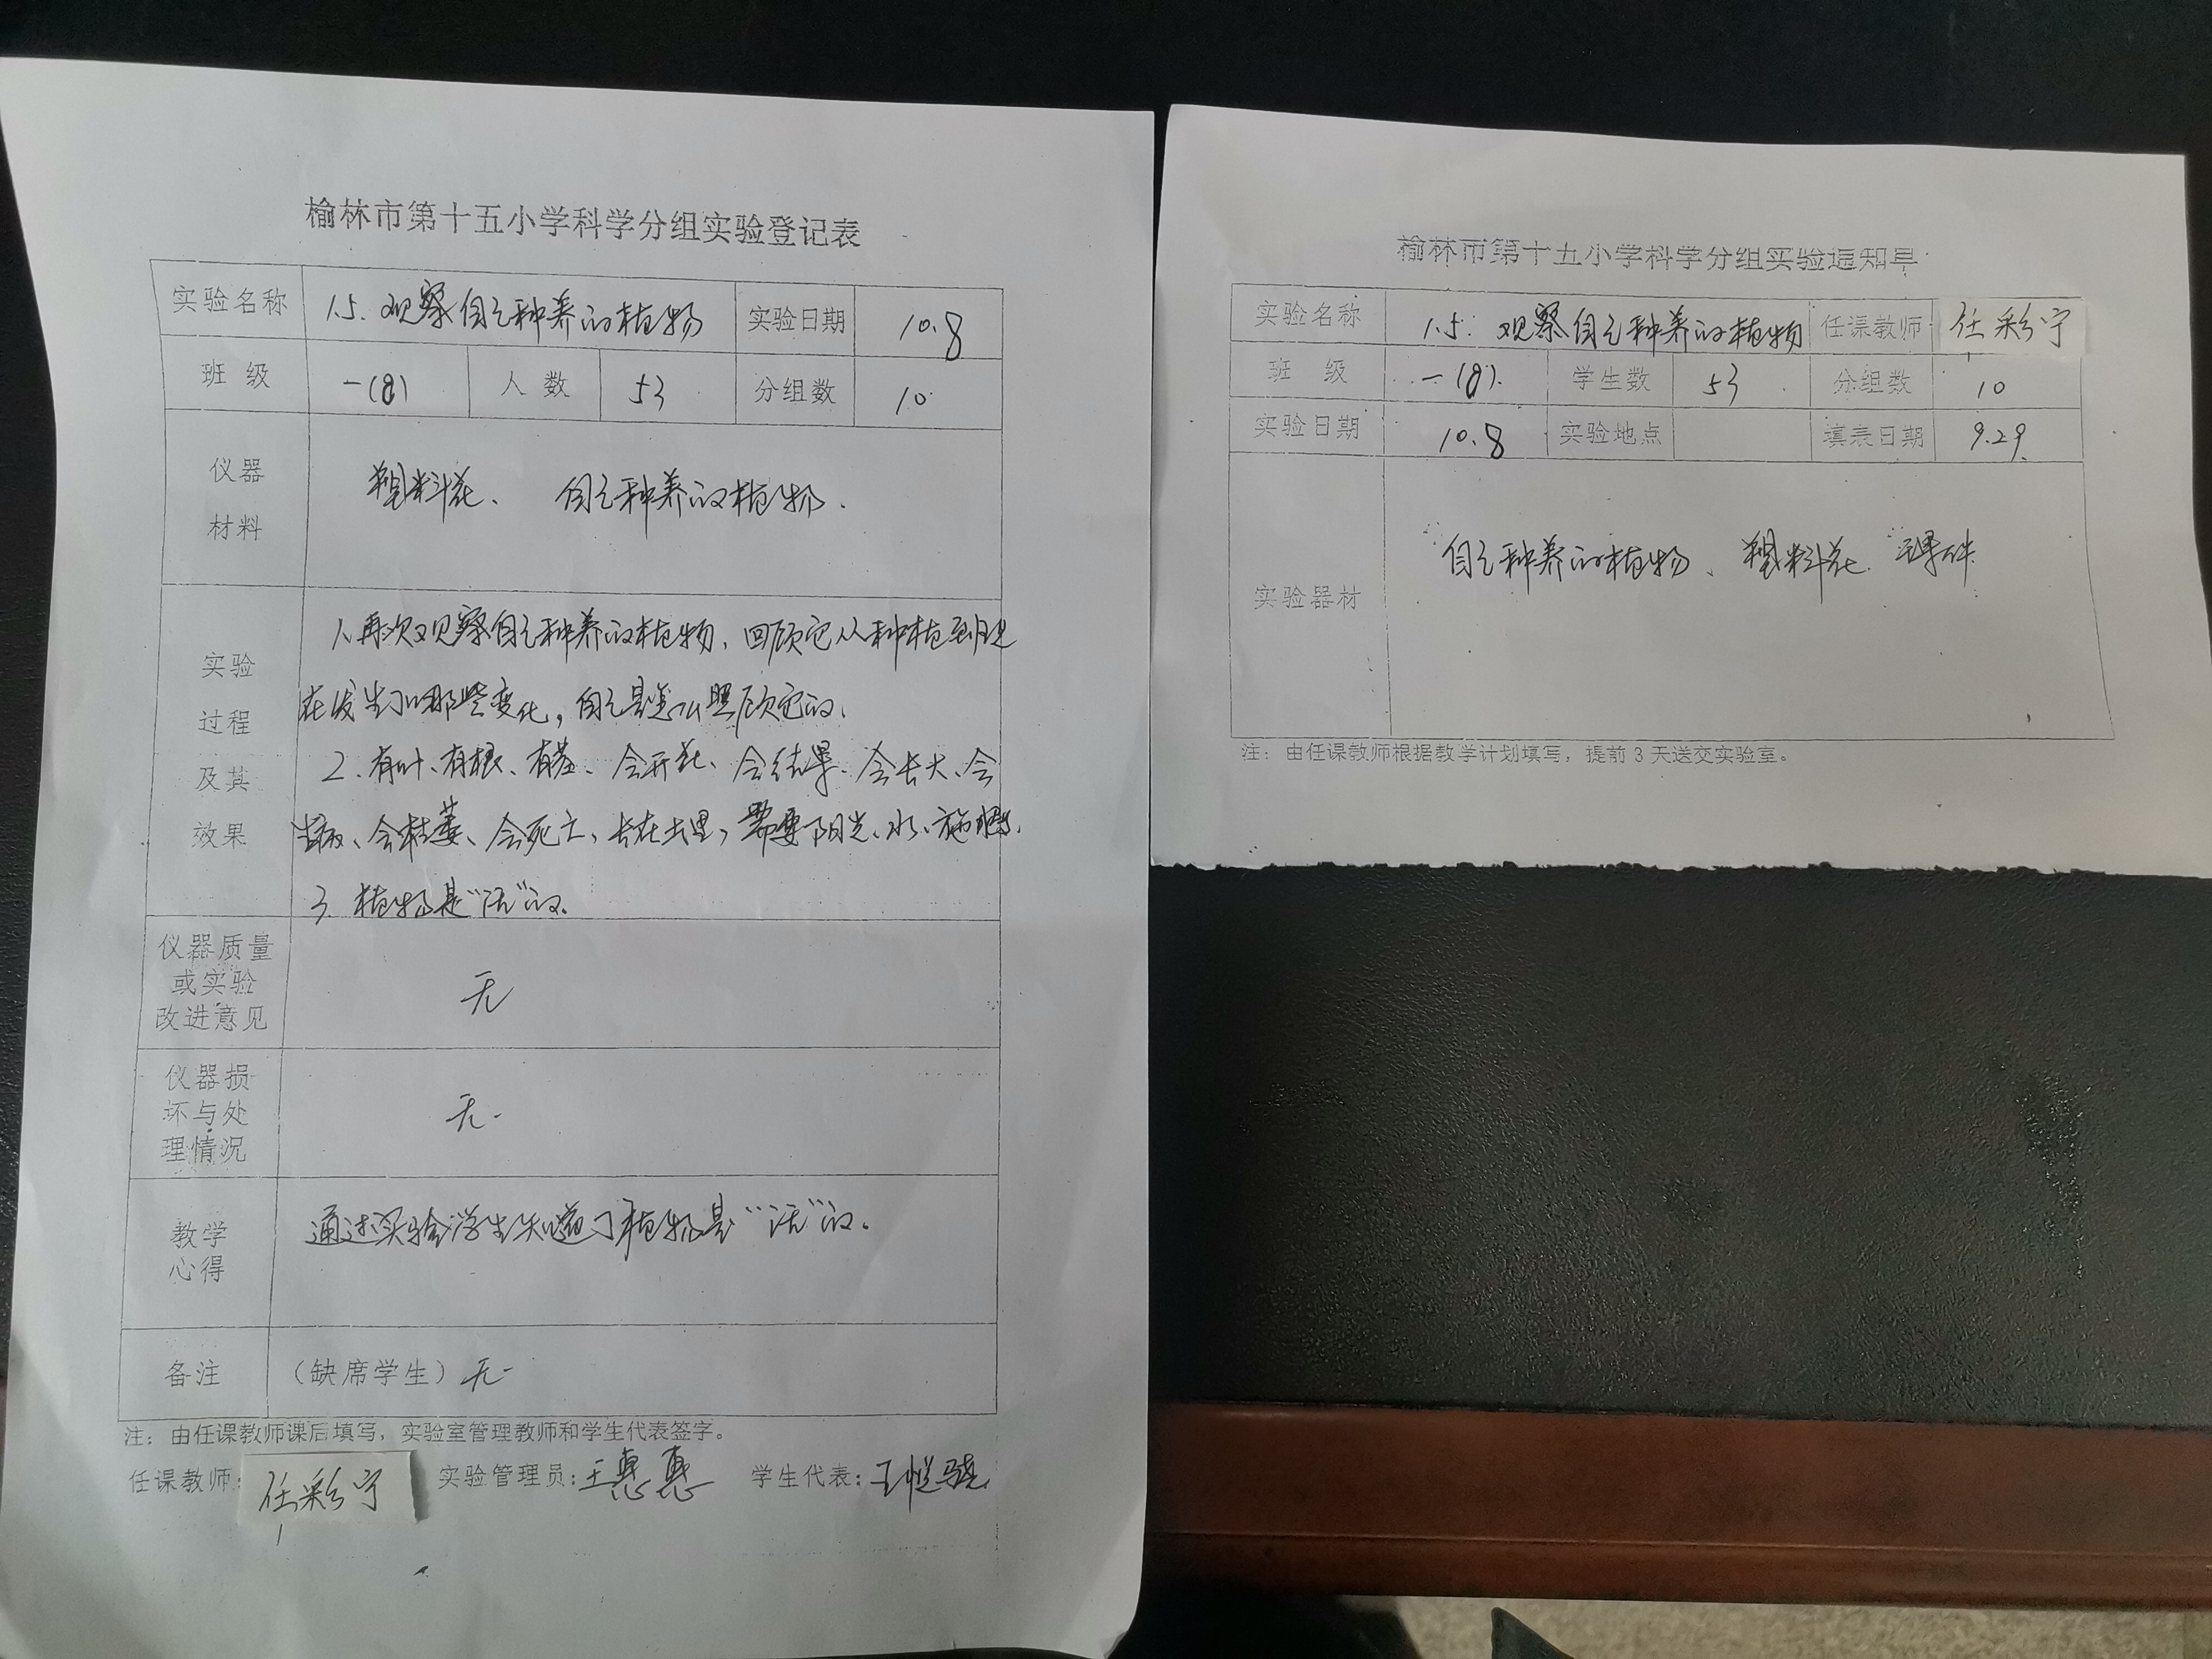 榆林市第十五小学科学分组实验登记表
实验名称 1.5. 观察自己种养的植物 实验日期 10.8
班级 一(8) 人数 53 分组数 10
仪器 材料 塑料花、 自己种养的植物.
实验 过程 及其 效果
1.再次观察自己种养的植物、回顾它从种植到现
在发生了哪些变化,自己是怎么照顾它的.
2.有叶、有根、有茎、会开花、会结果、会长大、会
生病、会枯萎、会死亡、长在土里,需要阳光、水、施肥.
3.植物是“活”的.
仪器质量
或实验
改进意见 无
仪器损
坏与处
理情况 无.
教学
心得 通过实验学生知道了植物是“活”的.
备注 (缺席学生)无
注:由任课教师课后填写,实验室管理教师和学生代表签字。
任课教师: 任彩宁 实验管理员:王惠惠 学生代表:王悦骁
榆林市第十五小学科学分组实验通知单
实验名称 1.5. 观察自己种养的植物 任课教师 任彩宁
班级 一(8). 学生数 53 分组数 10
实验日期 10.8 实验地点 填表日期 9.29
实验器材 自己种养的植物、塑料花 课件
注:由任课教师根据教学计划填写,提前3天送交实验室。